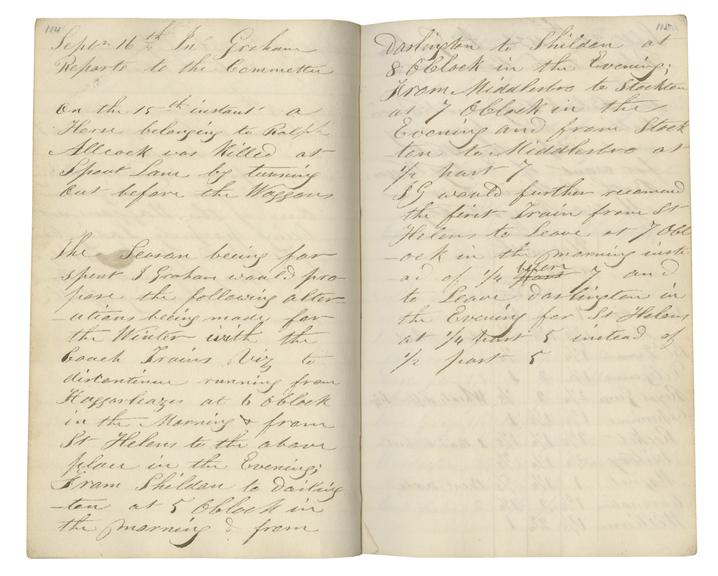 114
Septr 16th Jno Graham
Reports to the Committee
On the 15th instant a
Horse belonging to Ralph
Allcock was Killed at
Spout Lane by running
Out before the Waggons
The Season being far
Spent J Graham would pro-
pose the following alter-
-ations being made for
the Winter with the
Coach Trains Viz to
discontinue running from
Haggerleazes at 6 OClock
in the Morning & from
St Helens to the above
place in the Evening;
From Shildan to Darling
-ton at 5 OClock in
the Morning & from
115
Darlington to Shildan at
8 OClock in the Evening;
From Middlesbro to Stockton
at 7 OClock in the
Evening and from Stock
ton to Middlesbro at
1/2 past 7
JG would further recomend
the first Train from St
Helens to Leave at 7 OClo
-ock in the morning inste
ad of 1/4 before 7 and
to Leave Darlington in
the Evening for St Helens
at 1/4 past 5 instead of
1/2 past 5